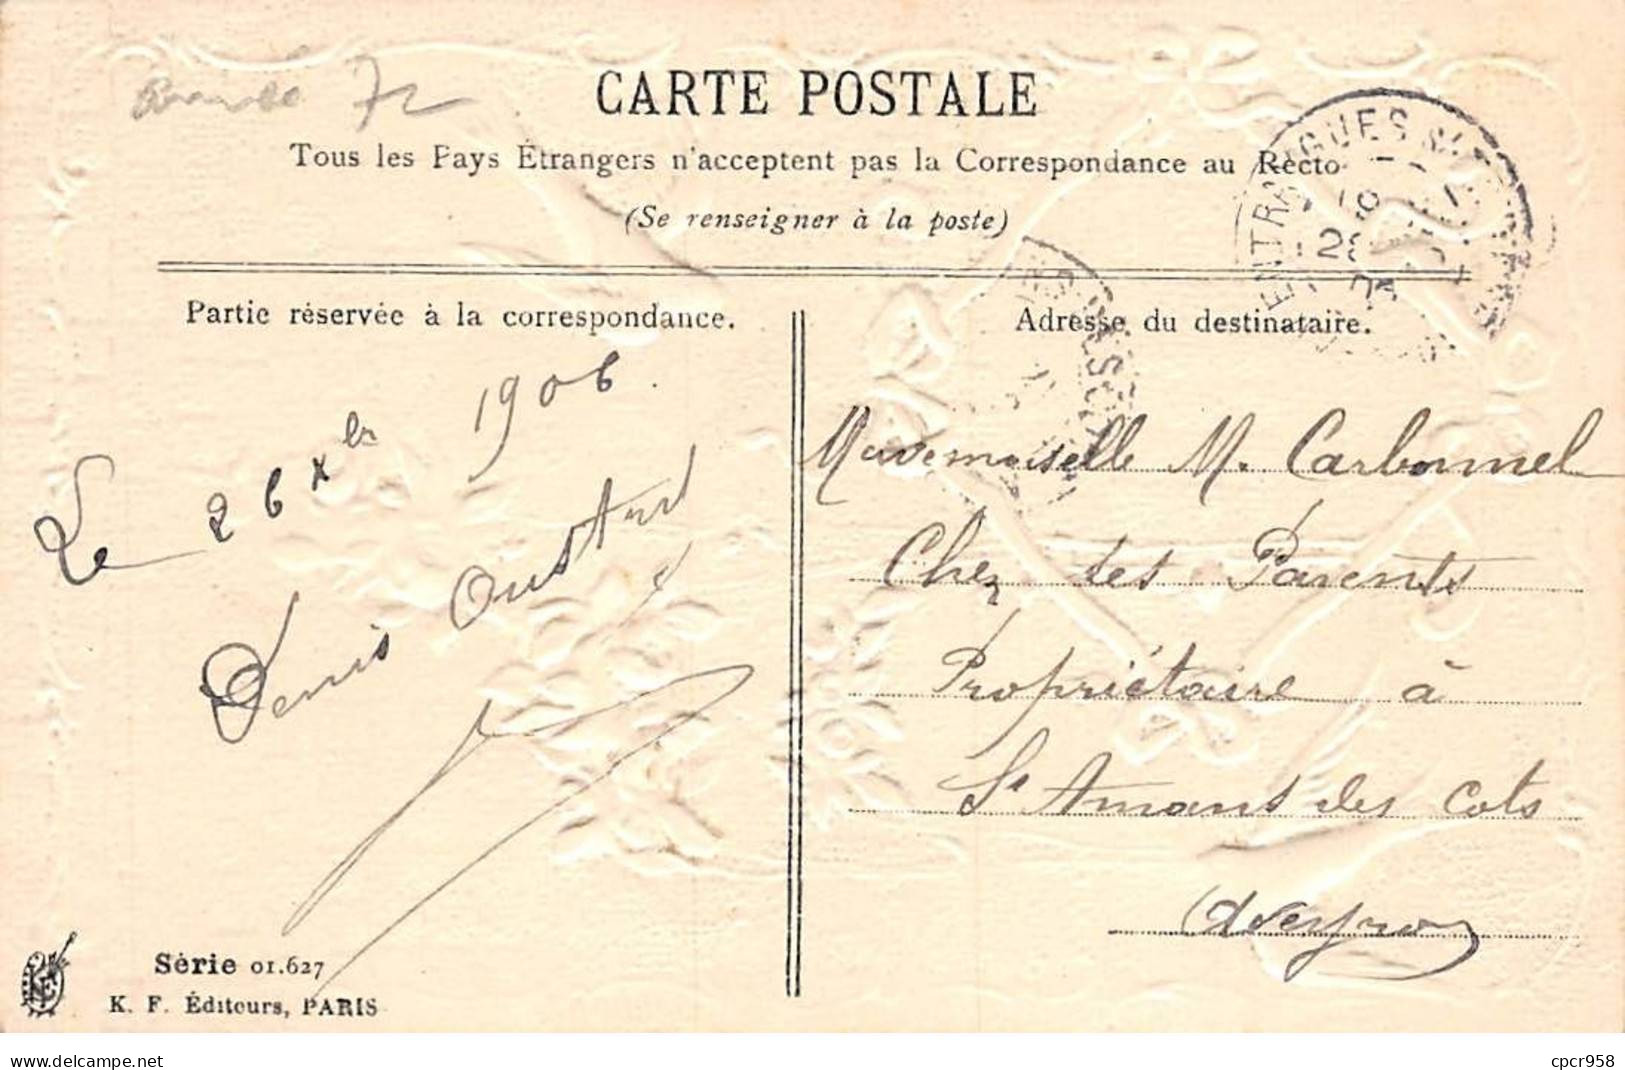 72
CARTE POSTALE
Tous les Pays Étrangers n'acceptent pas la Correspondance au Recto
(Se renseigner à la poste)
ENTRAYGUES
Partie réservée à la correspondance.
Adresse du destinataire.
Le 26 Xbr 1906.
Denis Oustry
Mademoiselle M. Carbonnel
Chez ses Parents
Propriétaire à
St Amans des Cots
Aveyron
Série 01.627
K. F. Éditeurs, PARIS
delcampe.net
cpcr958